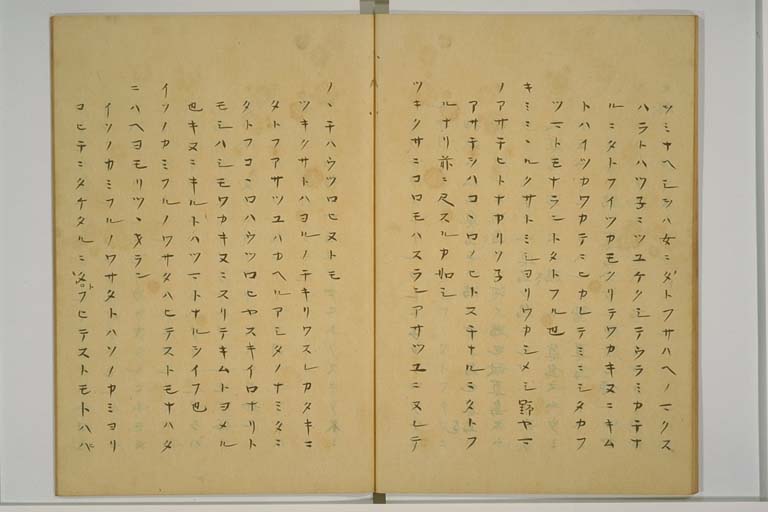 ヲミナヘシヲハ女ニタトフサハヘノマクス
ハラトハツ子ニツユケクシテウラミカチナ
ルニタトフイツカモクリテワカキヌニキム
トハイツカワカテニヒカレテミニシタカフ
ツマトモナラントタトフル也
キミニヽルクサトミシヨリワカシメシ野ヤマ
ノアサチヒトナカリソ子
アサチヲハコヽロノヒトスチナルニタトフ
ルナリ前ニ尺スルカ如シ
ツキクサニコロモハスランアサツユニヌレテ
ノヽチハウツロヒヌトモ
ツキクサトハヨルノチキリワスレカタキニ
タトフアサツユハカヘルアシタノナミタニ
タトフコヽロハウツロヒヤスキイロナリト
モシハシモワカキヌニスリテキムトヨメル
也キヌニキルトハツマトナルヲイフ也
イソノカミフルノワサタハヒテストモナハタ
ニハヘヨモリツヽヲラン
イソノカミフルノワサタトハソノカミヨリ
コヒテニタチタルニ フヒテストモトハハ